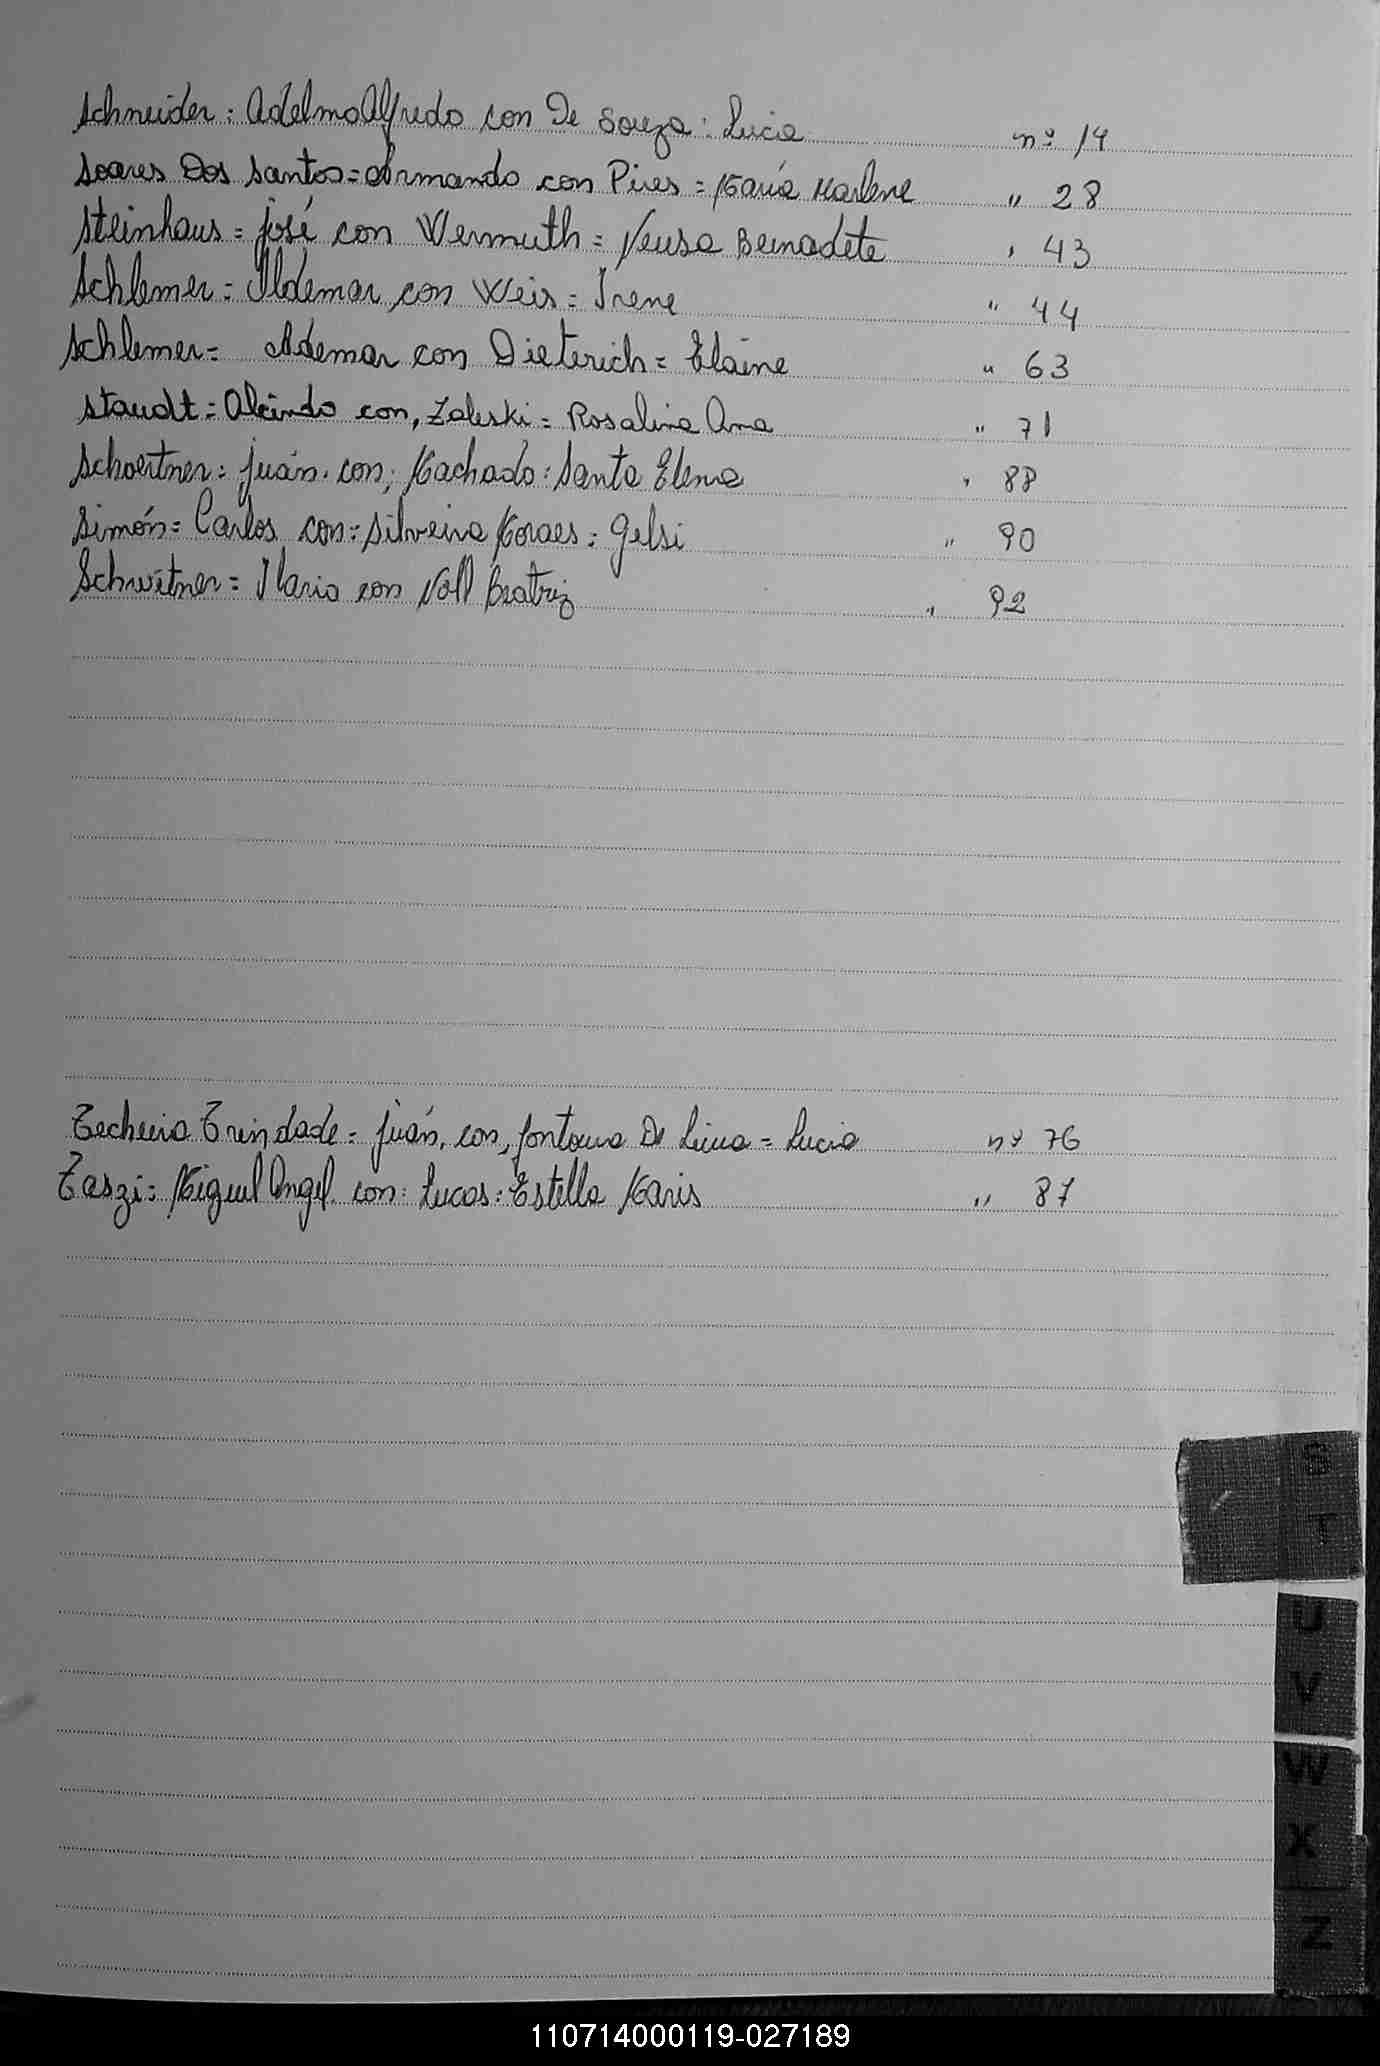 Schneider: Adelmo Alfredo con De Souza: Lucia nº 14
Soares Dos Santos = Armando con Pires = María Marlene " 28
Steinhaus = José con Wermuth = Neusa Bernadete " 43
Schlemer = Ildemar, con Weis = Irene " 44
Schlemer = Ademar con Dieterich = Elaine " 63
Staudt = Alcindo con, Zaleski = Rosalina Ana " 71
Schoertner = Juán. con; Machado: Santa Elena " 88
Simón = Carlos con = Silveira Moraes = Gelsi " 90
Schwitner = Ilario con Noll Beatriz " 92
Trindade = Juán, con, Fontoura De Lima = Lucia nº 76
Taszi: Miguel Angel. con: Lucas: Estella Maris " 87
S
T
U
V
W
X
Z
110714000119-027189